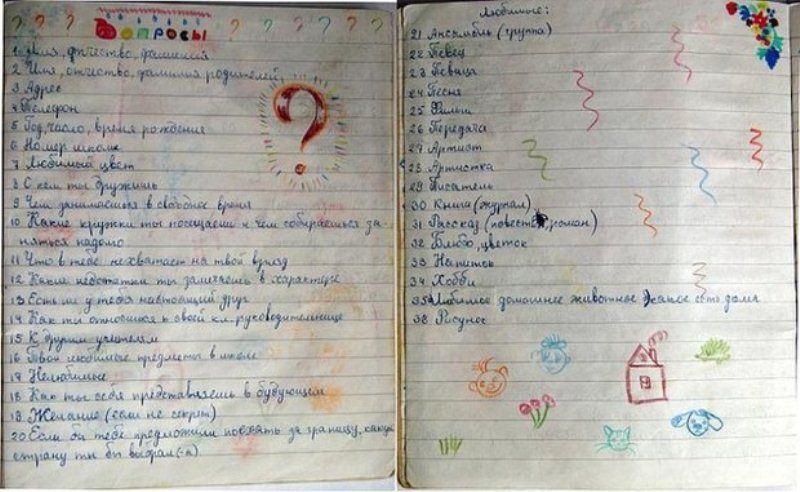 ? ? ? Вопросы ? ? ? ? ?
1 Имя, отчество, фамилия
2 Имя, отчество, фамилия родителей
3 Адрес
4 Телефон
5 Год, число, время рождения
6 Номер школы
7 Любимый цвет
8 С кем ты дружишь
9 Чем занимаешься в свободное время
10 Какие кружки ты посещаешь и чем собираешься за
няться надолго
11 Что в тебе не хватает на твой взгляд
12 Какие недостатки ты замечаешь в характере
13 Есть ли у тебя настоящий друг
14 Как ты относишся к своей кл. руководительнице
15 К другим учителям
16 Твои любимые предметы в школе
17 Нелюбимые
18 Как ты себя представляешь в будующем
19 Желание (если не секрет)
20 Если бы тебе предложили поехать за границу, какую
страну ты бы выбрал (-а)
?
Любимые:
21 Ансамбль (группа)
22 Певец
23 Певица
24 Песня
25 Фильм
26 Передача
27 Артист
28 Артистка
29 Писатель
30 Книга (журнал)
31 Рассказ (повесть, роман)
32 Блюдо, цветок
33 Напиток
34 Хобби
35 Любимое домашнее животное какое есть дома
36 Рисунок